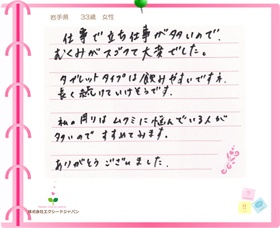 岩手県 33歳 女性
仕事で立ち仕事が多いので、
むくみがスゴクて大変でした。
タブレットタイプは飲みやすいですネ
長く続けていけそうです。
私の周りはムクミに悩んでいる人が
多いので すすめてみます。
ありがとうございました。
株式会社エクシードジャパン